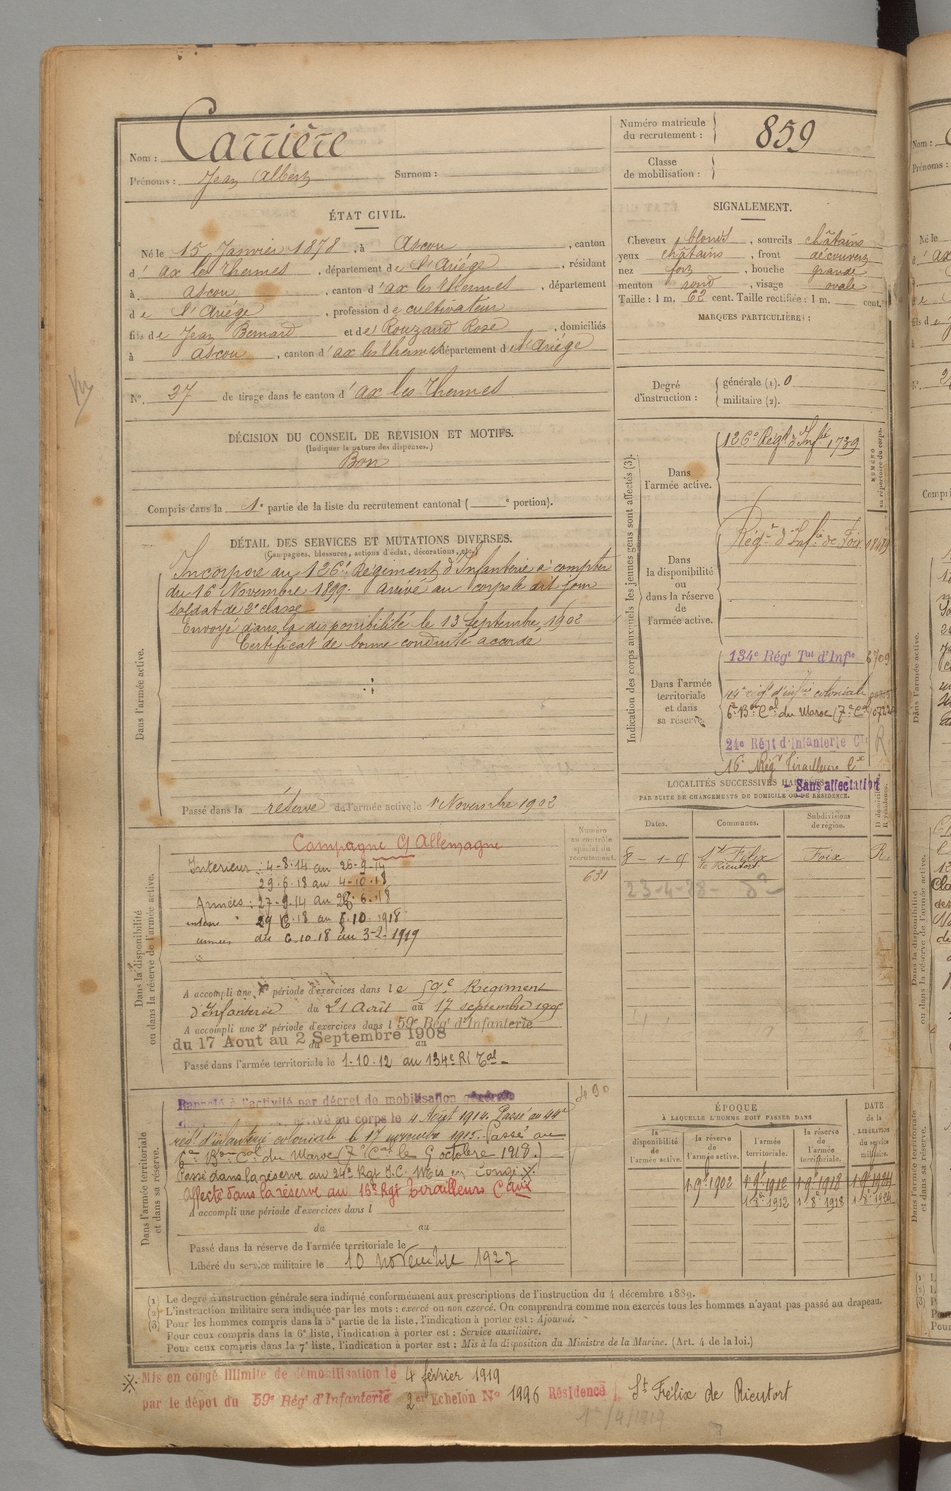 Nom : Carrière
Prénoms : Jean Albert Surnom :
Numéro matricule du recrutement : 859
Classe de mobilisation :
ÉTAT CIVIL.
Né le 15 Janvier 1878, à Ascou, canton
d'ax les Thermes, département de l'Ariège, résidant
à Ascou, canton d'ax les thermes, département
de l'Ariège, profession de cultivateur
fils de Jean Bernard et de Rouzaud Rose, domiciliés
à Ascou, canton d'ax les thermes département de l'Ariège
N°. 37 de tirage dans le canton d'ax les Thermes
SIGNALEMENT.
Cheveux blonds, sourcils châtains
yeux châtains, front découvert
nez fort, bouche grande
menton rond, visage ovale
Taille : 1 m. 62 cent. Taille rectifiée : 1 m. cent.
MARQUES PARTICULIÈRES :
Degré d'instruction : générale (1). 0
militaire (2).
DÉCISION DU CONSEIL DE RÉVISION ET MOTIFS.
(Indiquer la nature des dispenses.)
Bon
Compris dans la 1e partie de la liste du recrutement cantonal ( e portion).
DÉTAIL DES SERVICES ET MUTATIONS DIVERSES.
(Campagnes, blessures, actions d'éclat, décorations, etc.)
Dans l'armée active.
Incorporé au 126e Régiment d'Infanterie à compter
du 16 Novembre 1899. Arrivé au corps le dit jour
soldat de 2e classe
Envoyé dans la disponibilité le 13 Septembre 1902
Certificat de bonne conduite accordé
Passé dans la réserve de l'armée active le 1 Novembre 1902
Indication des corps auxquels les jeunes gens sont affectés (3).
NUMÉRO au répertoire du corps.
Dans l'armée active.
126e Régt d'Infie 1739
Dans la disponibilité ou dans la réserve de l'armée active.
Régt d'Infie de Foix
Dans l'armée territoriale et dans sa réserve.
134e Régt Tal d'Infie 6709
régt d'infie coloniale
6e Bon Cal du Maroc (7e Cie)
24e Régt d'Infanterie Cle R
16e Régt Tirailleurs
- Sans affectation
LOCALITÉS SUCCESSIVES HABITÉES
PAR SUITE DE CHANGEMENTS DE DOMICILE OU DE RÉSIDENCE.
Dates. Communes. Subdivisions de région. D domicile R résidence.
St Félix de Rieutort Foix R.
23-4-28
Dans la disponibilité ou dans la réserve de l'armée active.
Numéro au contrôle spécial du recrutement.
631
Campagne c/ Allemagne
Intérieur : 4-8-14 au 26-9-14
29-6-18 au 4-10-18
Armées : 27-9-14 au 28-6-18
armées du 6.10.18 au 3-2-1919
A accompli une 1e période d'exercices dans le 59e Régiment
d'Infanterie du 21 Avril au 17 septembre
A accompli une 2e période d'exercices dans l 59e Régt d'Infanterie
du 17 Aout au 2 Septembre 1908
Passé dans l'armée territoriale le 1-10-12 au 134e RI Tal
Dans l'armée territoriale et dans sa réserve.
490
Rappelé à l'activité par décret de mobilisation générale
arrivé au corps le 4 Août 1914. Passé au 44e
régt d'infanterie coloniale le 17 novembre 1915. Passé au
6e Bon Cal du Maroc (7e Cie) le 9 octobre 1918.
Passé dans la réserve au 24e Rgt I.C. Mis en congé
Affecté dans la réserve au 16e Rgt Tirailleurs
A accompli une période d'exercices dans l
du au
Passé dans la réserve de l'armée territoriale le
Libéré du service militaire le 10 novembre 1927
ÉPOQUE
À LAQUELLE L'HOMME DOIT PASSER DANS
la disponibilité de l'armée active. la réserve de l'armée active. l'armée territoriale. la réserve de l'armée territoriale.
DATE de la LIBÉRATION du service militaire.
1 9bre 1902 1 9bre 1912 1 9bre 1918
(1) Le degré d'instruction générale sera indiqué conformément aux prescriptions de l'instruction du 4 décembre 1889.
(2) L'instruction militaire sera indiquée par les mots : exercé ou non exercé. On comprendra comme non exercés tous les hommes n'ayant pas passé au drapeau.
(3) Pour les hommes compris dans la 5e partie de la liste, l'indication à porter est : Ajourné.
Pour ceux compris dans la 6e liste, l'indication à porter est : Service auxiliaire.
Pour ceux compris dans la 7e liste, l'indication à porter est : Mis à la disposition du Ministre de la Marine. (Art. 4 de la loi.)
Mis en congé illimité de démobilisation le 4 février 1919
par le dépot du 59e Régt d'Infanterie 2e Echelon N° 1996 Résidence St Félix de Rieutort